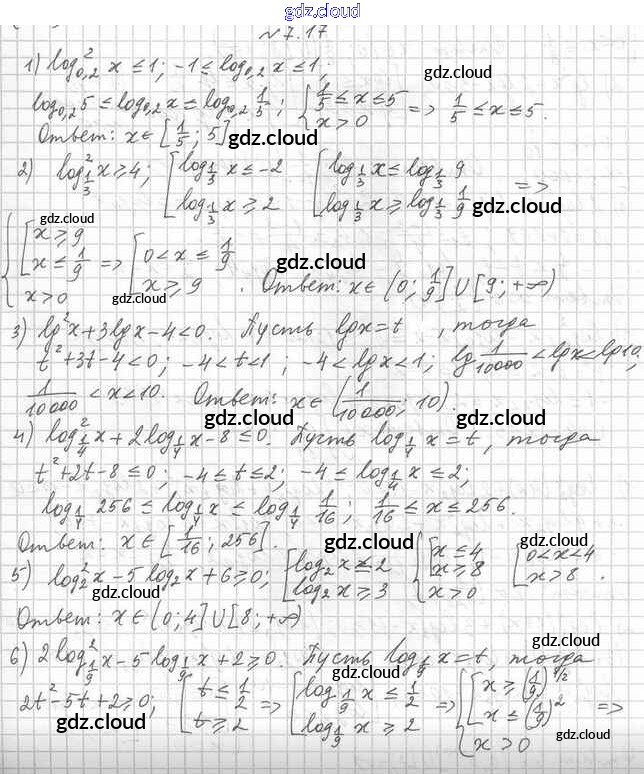 gdz.cloud
№7.17
1) log²_{0,2} x ≤ 1; -1 ≤ log_{0,2} x ≤ 1; gdz.cloud
log_{0,2} 5 ≤ log_{0,2} x ≤ log_{0,2} 1/5; { 1/5 ≤ x ≤ 5 x > 0 => 1/5 ≤ x ≤ 5.
Ответ: x ∈ [1/5; 5] gdz.cloud gdz.cloud
2) log²_{1/3} x ≥ 4; [ log_{1/3} x ≤ -2 log_{1/3} x ≥ 2 [ log_{1/3} x ≤ log_{1/3} 9 log_{1/3} x ≥ log_{1/3} 1/9 =>
gdz.cloud gdz.cloud
{ [ x ≥ 9 x ≤ 1/9 x > 0 => [ 0 < x ≤ 1/9 x ≥ 9 . Ответ: x ∈ (0; 1/9] U [9; +∞)
gdz.cloud
3) lg²x + 3lgx - 4 < 0. Пусть lgx = t , тогда
gdz.cloud gdz.cloud
t² + 3t - 4 < 0; -4 < t < 1; -4 < lgx < 1; lg 1/10000 < lgx < lg10;
1/10000 < x < 10. Ответ: x ∈ (1/10000; 10).
gdz.cloud gdz.cloud
4) log²_{1/4} x + 2log_{1/4} x - 8 ≤ 0. Пусть log_{1/4} x = t, тогда
t² + 2t - 8 ≤ 0; -4 ≤ t ≤ 2; -4 ≤ log_{1/4} x ≤ 2;
gdz.cloud gdz.cloud
log_{1/4} 256 ≤ log_{1/4} x ≤ log_{1/4} 1/16; 1/16 ≤ x ≤ 256.
Ответ: x ∈ [1/16; 256]. gdz.cloud gdz.cloud
5) log²_2 x - 5log_2 x + 6 ≥ 0; [ log_2 x ≤ 2 log_2 x ≥ 3 { [ x ≤ 4 x ≥ 8 x > 0 [ 0 < x < 4 x > 8 .
gdz.cloud gdz.cloud
Ответ: x ∈ (0; 4] U [8; +∞)
gdz.cloud
6) 2log²_{1/9} x - 5log_{1/9} x + 2 ≥ 0. Пусть log_{1/9} x = t, тогда
gdz.cloud
2t² - 5t + 2 ≥ 0; [ t ≤ 1/2 t ≥ 2 => [ log_{1/9} x ≤ 1/2 log_{1/9} x ≥ 2 => { [ x ≥ (1/9)^{1/2} x ≤ (1/9)² x > 0 =>
gdz.cloud gdz.cloud gdz.cloud